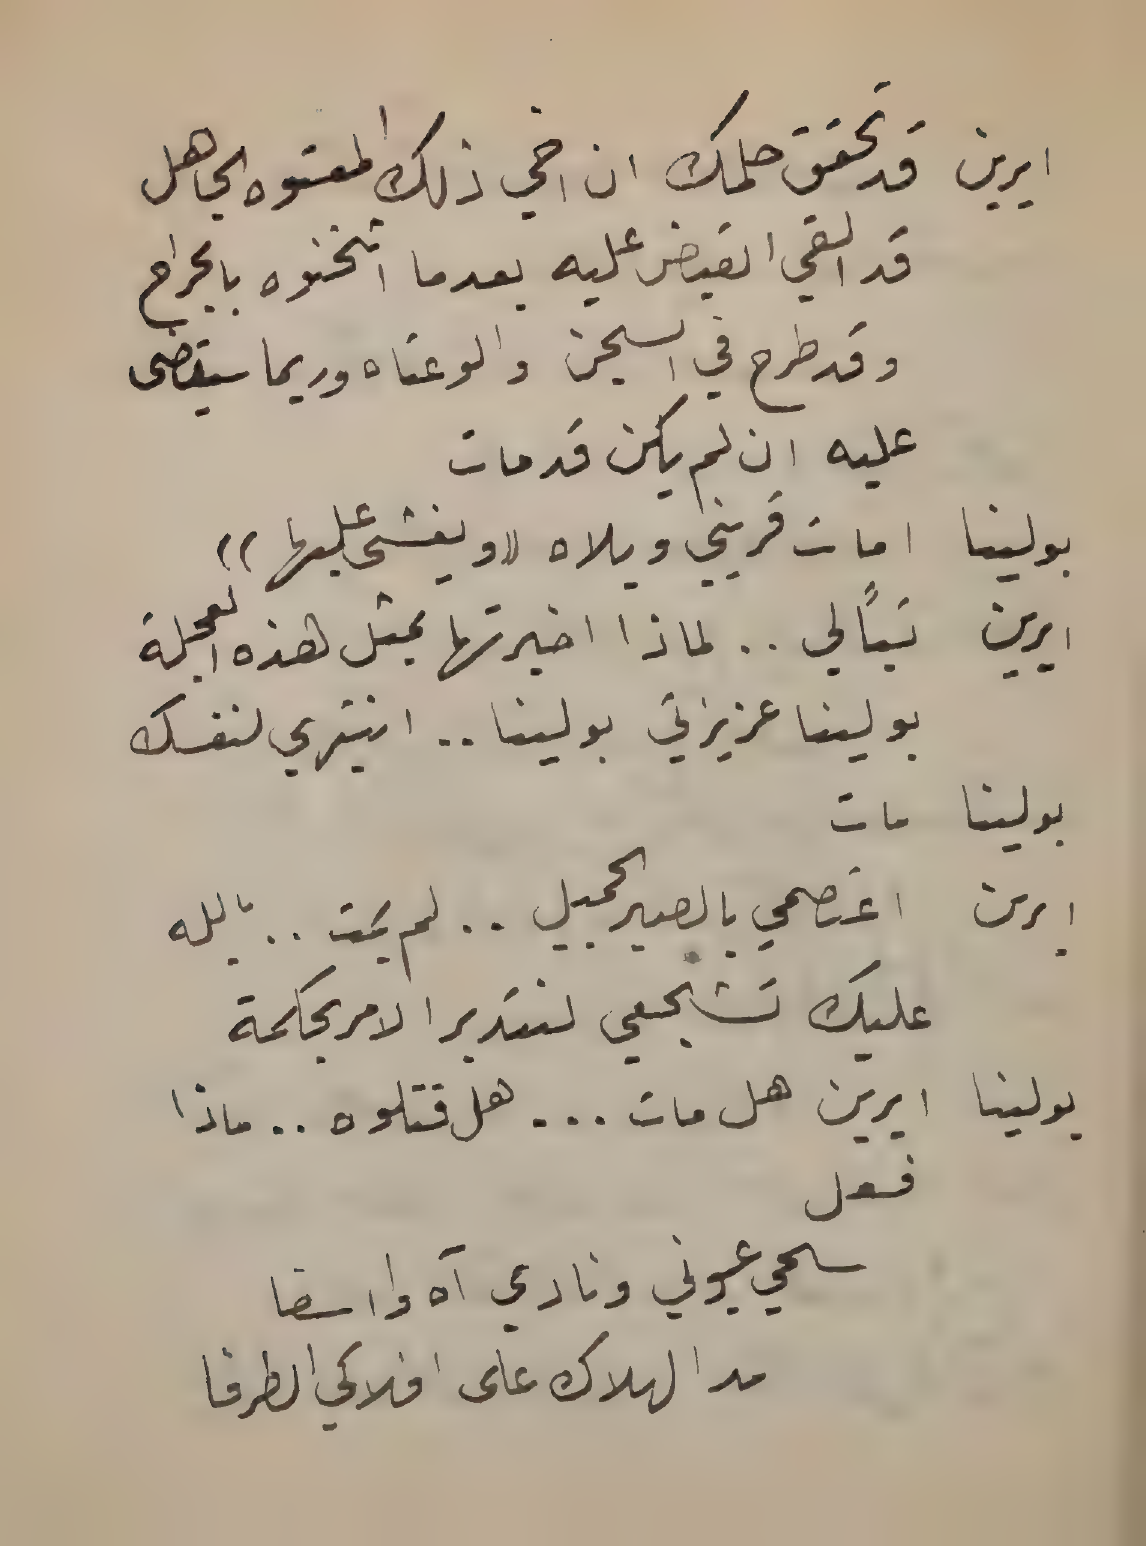 ايرين قد تحقق حلمك ان اخي ذلك المعتوه الجاهل
قد القي القبض عليه بعدما اثخنوه بالجراح
وقد طرح في السجن والوعتاه وربما سيقضى
عليه ان لم يكن قد مات
بولينا امات قريني ويلاه «ويغشى عليها»
ايرين تباً لي .. لماذا اخبرتها بمثل هذه العجلة
بولينا عزيزتي بولينا .. انتبهي لنفسك
بولينا مات
ايرين اعتصمي بالصبر الجميل .. لم يمت .. بالله
عليك تشجعي لنتدبر الامر بحكمة
بولينا ايرين هل مات ... هل قتلوه .. ماذا
فعل
سحي عيوني ونادي آه وا اسفا
مد الهلاك على افلاكي الطرفا